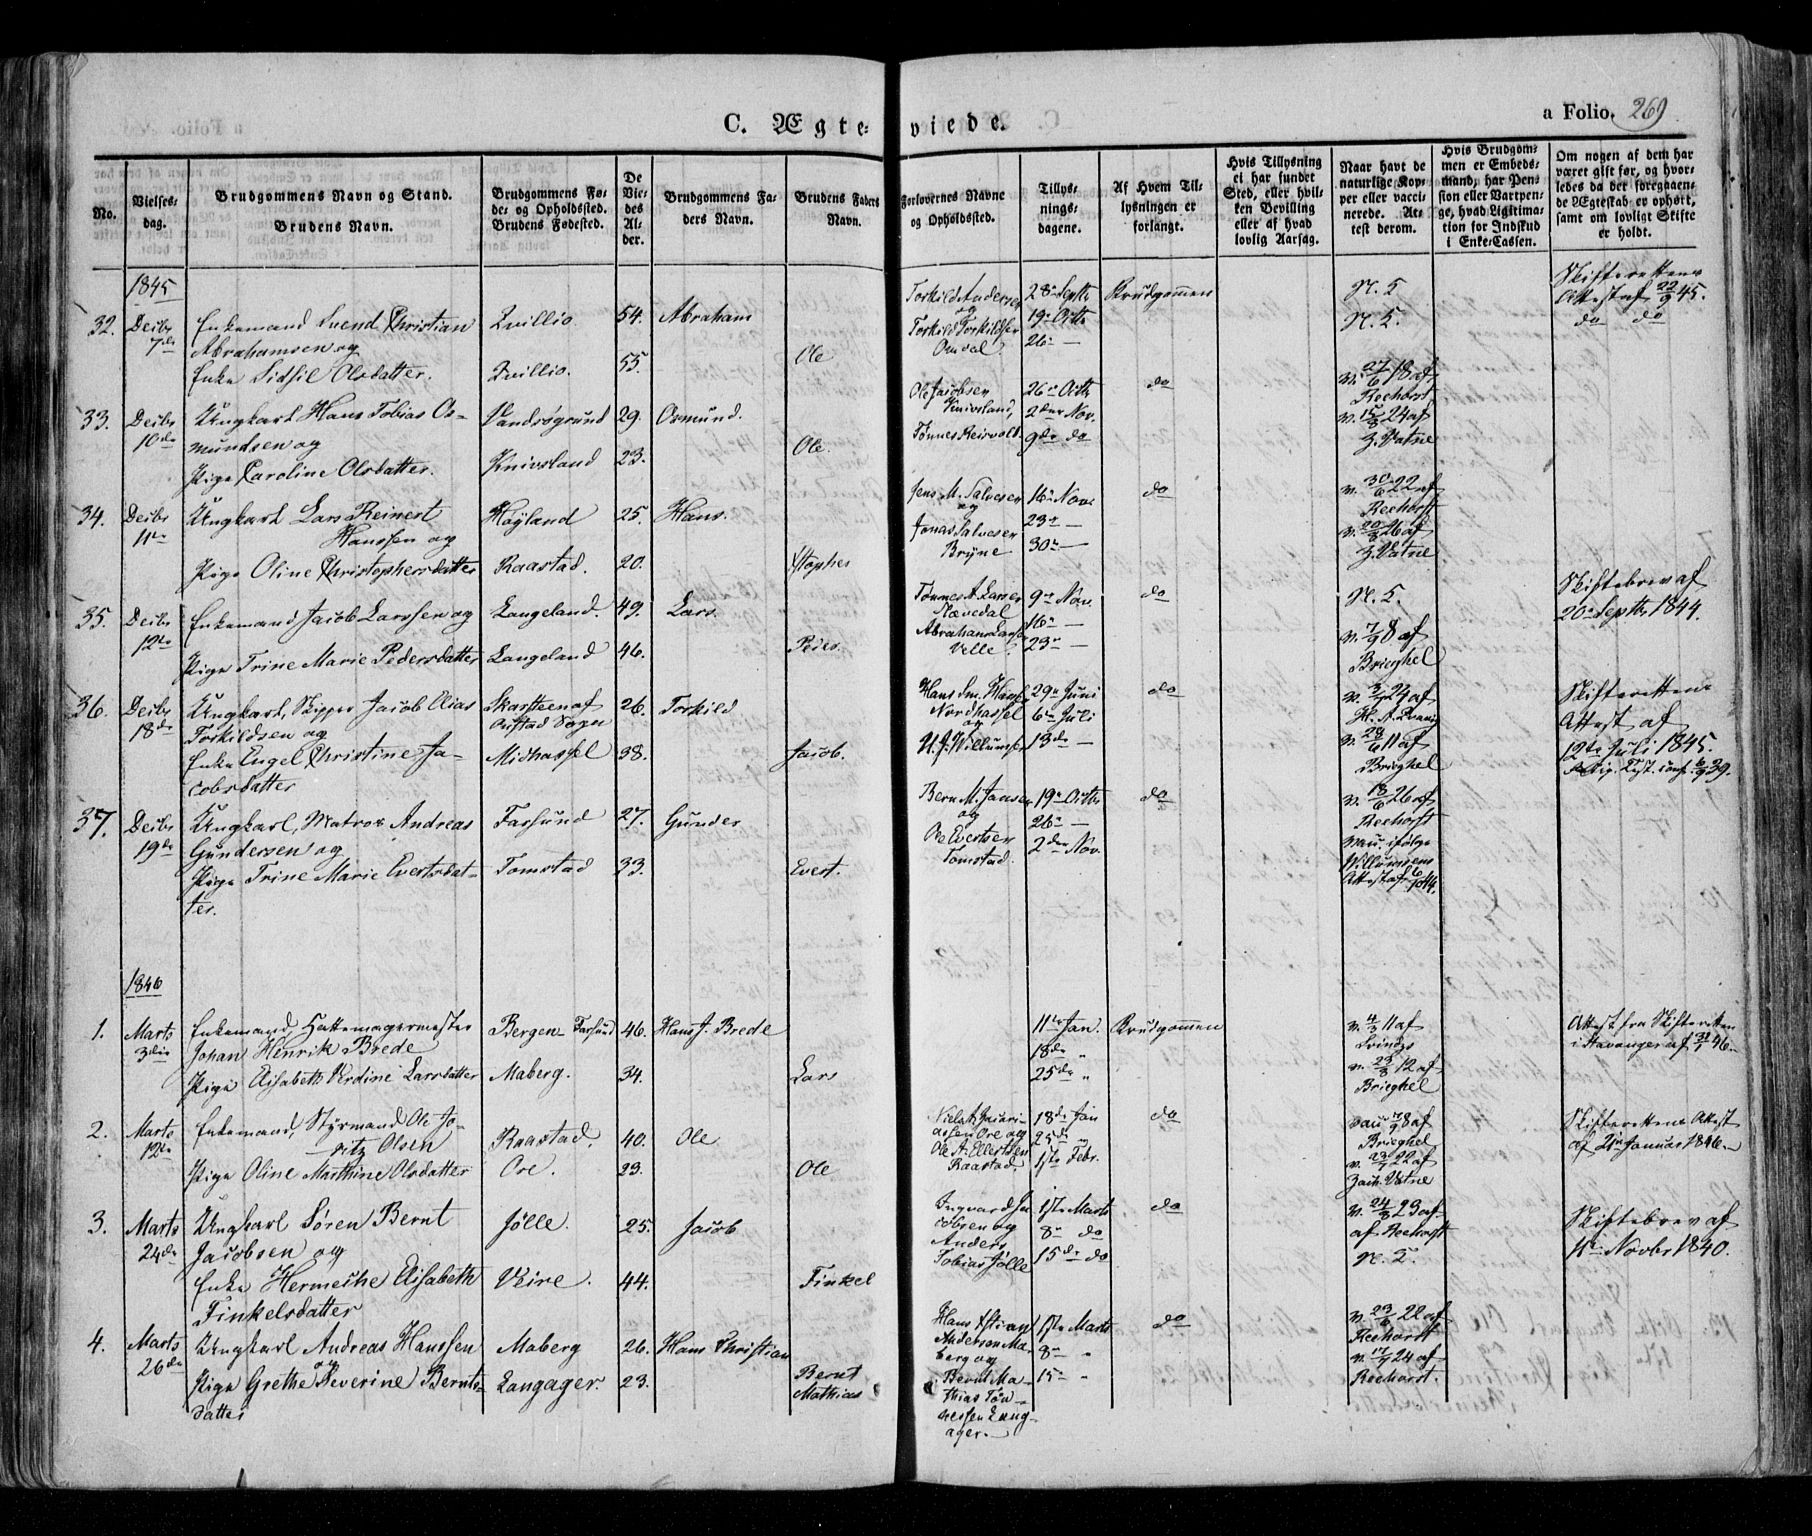 C. Ægte- viede.
a Folio. 269
No.
Vielses-
dag.
Brudgommens Navn og Stand.
Brudens Navn.
Brudgommens Fø-
de- og Opholdssted.
Brudens Fødested.
De
Vie-
des
Al-
der.
Brudgommens Fa-
ders Navn.
Brudens Faders
Navn.
Forlovernes Navne
og Opholdssted.
Tillys-
nings-
dagene.
Af Hvem Til-
lysningen er
forlangt.
Hvis Tillysning
ei har fundet
Sted, eller hvil-
ken Bevilling
eller af hvad
lovlig Aarsag.
Naar havt de
naturlige Kop-
per eller vacci-
nerede. At-
test derom.
Hvis Brudgom-
men er Embeds-
mand, har Pen-
sion eller Vartpen-
ge, hvad Ligitima-
tion for Indskud
i Enke-Cassen.
Om nogen af dem har
været gift før, og hvor-
ledes da det foregaaen-
de Ægteskab er ophørt,
samt om lovligt Skifte
er holdt.
1845
32. Decbr 7de
Enkemand Svend Christian
Abrahamsen og
Enke Sidsil Olsdatter.
Qvillio 54. Abraham
Qvillio. 55. Ole
Torkild Andersen
og
Torkild Torkildsen
Omdal
28de Septbr
19de Octbr
26de —
Brudgommen
N. S.
N. S.
Skifterettens
Attest af 22/9 45.
do do
33. Decbr 10de
Ungkarl Hans Tobias Os-
mundsen og
Pige Caroline Olsdatter.
Vandsøgrund 29. Osmund.
Knivsland 23. Ole.
Ole Jacobsen
Knivsland,
Tønnes Reirvold.
26de Octbr
2den Nov.
9de do
do
v. 27/6 18 af
Reehorst
v. 15/8 24 af
Z. Vatne
34. Decbr 11te
Ungkarl Lars Reinert
Hanssen og
Pige Oline Christophersdatter
Høyland 25. Hans.
Raastad. 20. Xstopher
Jens M. Salvesen
og
Jonas Salvesen
Bryne
16de Nov.
23de —
30te —
do
v. 30/6 22 af
Reehorst
v. 20/8 26 af
Z. Vatne
35. Decbr 12te
Enkemand Jacob Larssen og
Pige Trine Marie Pedersdatter
Langeland. 49. Lars.
Langeland 46. Peder.
Tønnes A. Larsen
Nævedal
Abraham Larsen
Velle.
9de Nov.
16de —
23de —
do
N. S.
v. 7/9 8 af
Brieghel
Skiftebrev af
20de Septbr 1844.
36. Decbr 18de
Ungkarl, Skipper Jacob Elias
Torkildsen og
Enke Engel Christine Ja-
cobsdatter
Skarsteen af
Austad Sogn 26. Torkild
Midhassel 38. Jacob.
Hans Sm. Hansen
Nordhassel
og
U. J. Willumsen
29de Juni
6te Juli
13de —
do
v. 3/7 24 af
v. 28/6 11 af
Brieghel
Skifterettens
Attest af
12te Juli 1845.
37. Decbr 19de
Ungkarl, Matros Andreas
Gundersen og
Pige Trine Marie Evertsdat-
ter.
Farsund 27. Gunder
Tomstad 33. Evert.
Bern M. Jansen
og
Ole Evertsen
Tomstad.
19de Octbr
26de —
2den Nov.
do
v. 18/6 26 af
Reehorst
vacc. ifølge
Willumsens
Attest af 6/10 44.
1846
1. Marts 3die
Enkemand, Hattemagermester
Johan Henrik Brede
Pige Elisabeth Verdine Larsdatter
Bergen - Farsund 46. Hans J. Brede
Maberg. 34. Lars
11te Jan.
18de "
25de "
Brudgommen
v. 4/3 11 af
v. 23/8 12 af
Brieghel
Attest fra Skifteretten
i Stavanger af 31/1 46.
2. Marts 12te
Enkemand, Styrmand Ole Jo-
ritz Olsen
Pige Oline Marthine Olsdatter
Raastad, 40. Ole
Ore. 23. Ole
Niels A. Zacari-
assen Ore og
Ole A. Ellertsen
Raastad.
18de Jan
25de "
1ste Febr.
do
vacc. 7/9 8 af
Brieghel
v. 23/7 22 af
Zach. Vatne
Skifterettens Attest
af 21de Januar 1846.
3. Marts 24de
Ungkarl Søren Bernt
Jacobsen og
Enke Hermeche Elisabeth
Finkelsdatter
Jølle. 25. Jacob
Veire. 44. Finkel
Ingvard Ja-
cobsen og
Anders
Tobias Jølle
1ste Marts
8de do
15de do
do
v. 24/8 23 af
af Reehorst
N. S.
Skiftebrev af
11te Novbr 1840.
4. Marts 26de
Ungkarl Andreas Hanssen
og
Pige Grethe Severine Bernts-
datter
Maberg 26. Hans Christian
Langager. 23. Bernt
Mathias
Hans Xstian
Andersen Ma-
berg og
Bernt Ma-
thias Tøn-
nessen Lang-
ager.
1ste Marts
8de "
15de "
do
v. 23/6 22 af
Reehorst
v. 17/7 24 af
Reehorst.